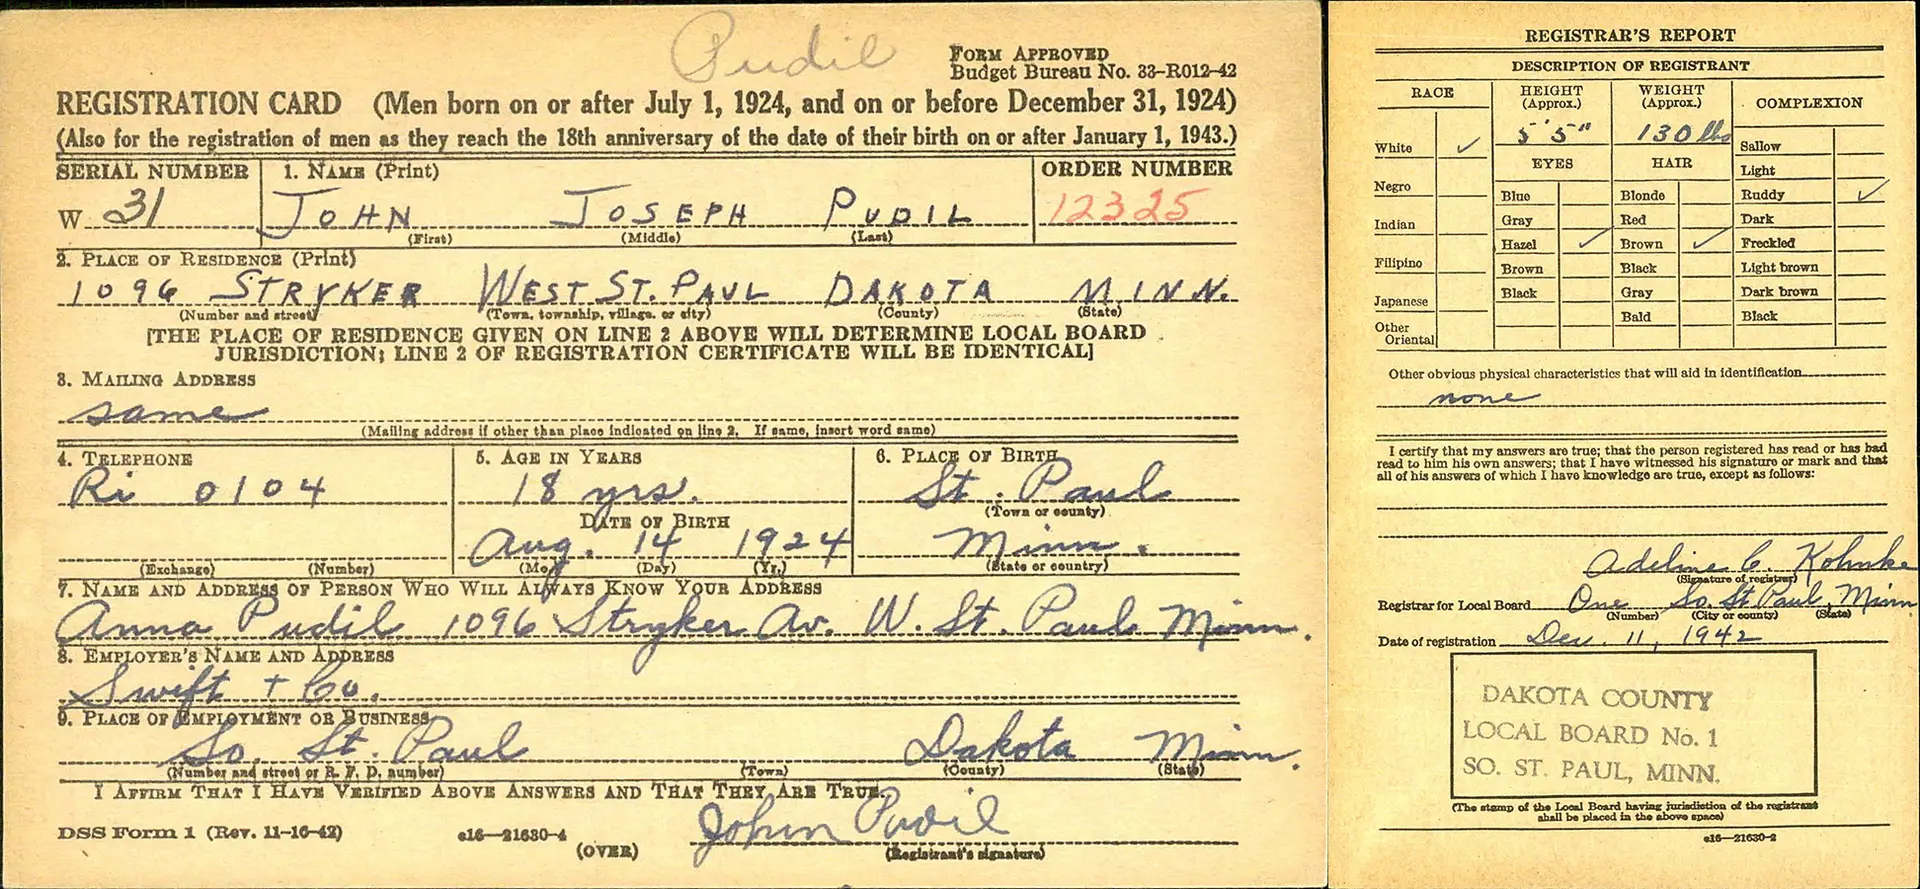 Pudil
FORM APPROVED
Budget Bureau No. 33-R012-42
REGISTRATION CARD (Men born on or after July 1, 1924, and on or before December 31, 1924)
(Also for the registration of men as they reach the 18th anniversary of the date of their birth on or after January 1, 1943.)
SERIAL NUMBER 1. NAME (Print) ORDER NUMBER
W 31 JOHN JOSEPH PUDIL 12325
(First) (Middle) (Last)
2. PLACE OF RESIDENCE (Print)
1096 STRYKER WEST ST. PAUL DAKOTA MINN.
(Number and street) (Town, township, village, or city) (County) (State)
[THE PLACE OF RESIDENCE GIVEN ON LINE 2 ABOVE WILL DETERMINE LOCAL BOARD
JURISDICTION; LINE 2 OF REGISTRATION CERTIFICATE WILL BE IDENTICAL]
3. MAILING ADDRESS
same
(Mailing address if other than place indicated on line 2. If same, insert word same)
4. TELEPHONE 5. AGE IN YEARS 6. PLACE OF BIRTH
Ri 0104 18 yrs. St. Paul
(Town or county)
DATE OF BIRTH
Aug. 14 1924 Minn.
(Exchange) (Number) (Mo.) (Day) (Yr.) (State or country)
7. NAME AND ADDRESS OF PERSON WHO WILL ALWAYS KNOW YOUR ADDRESS
Anna Pudil 1096 Stryker Av. W. St. Paul Minn.
8. EMPLOYER'S NAME AND ADDRESS
Swift + Co.
9. PLACE OF EMPLOYMENT OR BUSINESS
So. St. Paul Dakota Minn.
(Number and street or R. F. D. number) (Town) (County) (State)
I AFFIRM THAT I HAVE VERIFIED ABOVE ANSWERS AND THAT THEY ARE TRUE.
John Pudil
DSS Form 1 (Rev. 11-16-42) c16—21630-4
(OVER) (Registrant's signature)
REGISTRAR'S REPORT
DESCRIPTION OF REGISTRANT
RACE HEIGHT (Approx.) WEIGHT (Approx.) COMPLEXION
5' 5" 130 lbs
White ✓ Sallow
EYES HAIR Light
Negro Blue Blonde Ruddy ✓
Indian Gray Red Dark
Hazel ✓ Brown ✓ Freckled
Filipino Brown Black Light brown
Japanese Black Gray Dark brown
Bald Black
Other
Oriental
Other obvious physical characteristics that will aid in identification
none
I certify that my answers are true; that the person registered has read or has had
read to him his own answers; that I have witnessed his signature or mark and that
all of his answers of which I have knowledge are true, except as follows:
Adeline C. Kohnke
(Signature of registrar)
Registrar for Local Board One So. St. Paul, Minn
(Number) (City or county) (State)
Date of registration Dec. 11, 1942
DAKOTA COUNTY
LOCAL BOARD No. 1
SO. ST. PAUL, MINN.
(The stamp of the Local Board having jurisdiction of the registrant
shall be placed in the above space)
c16—21630-2